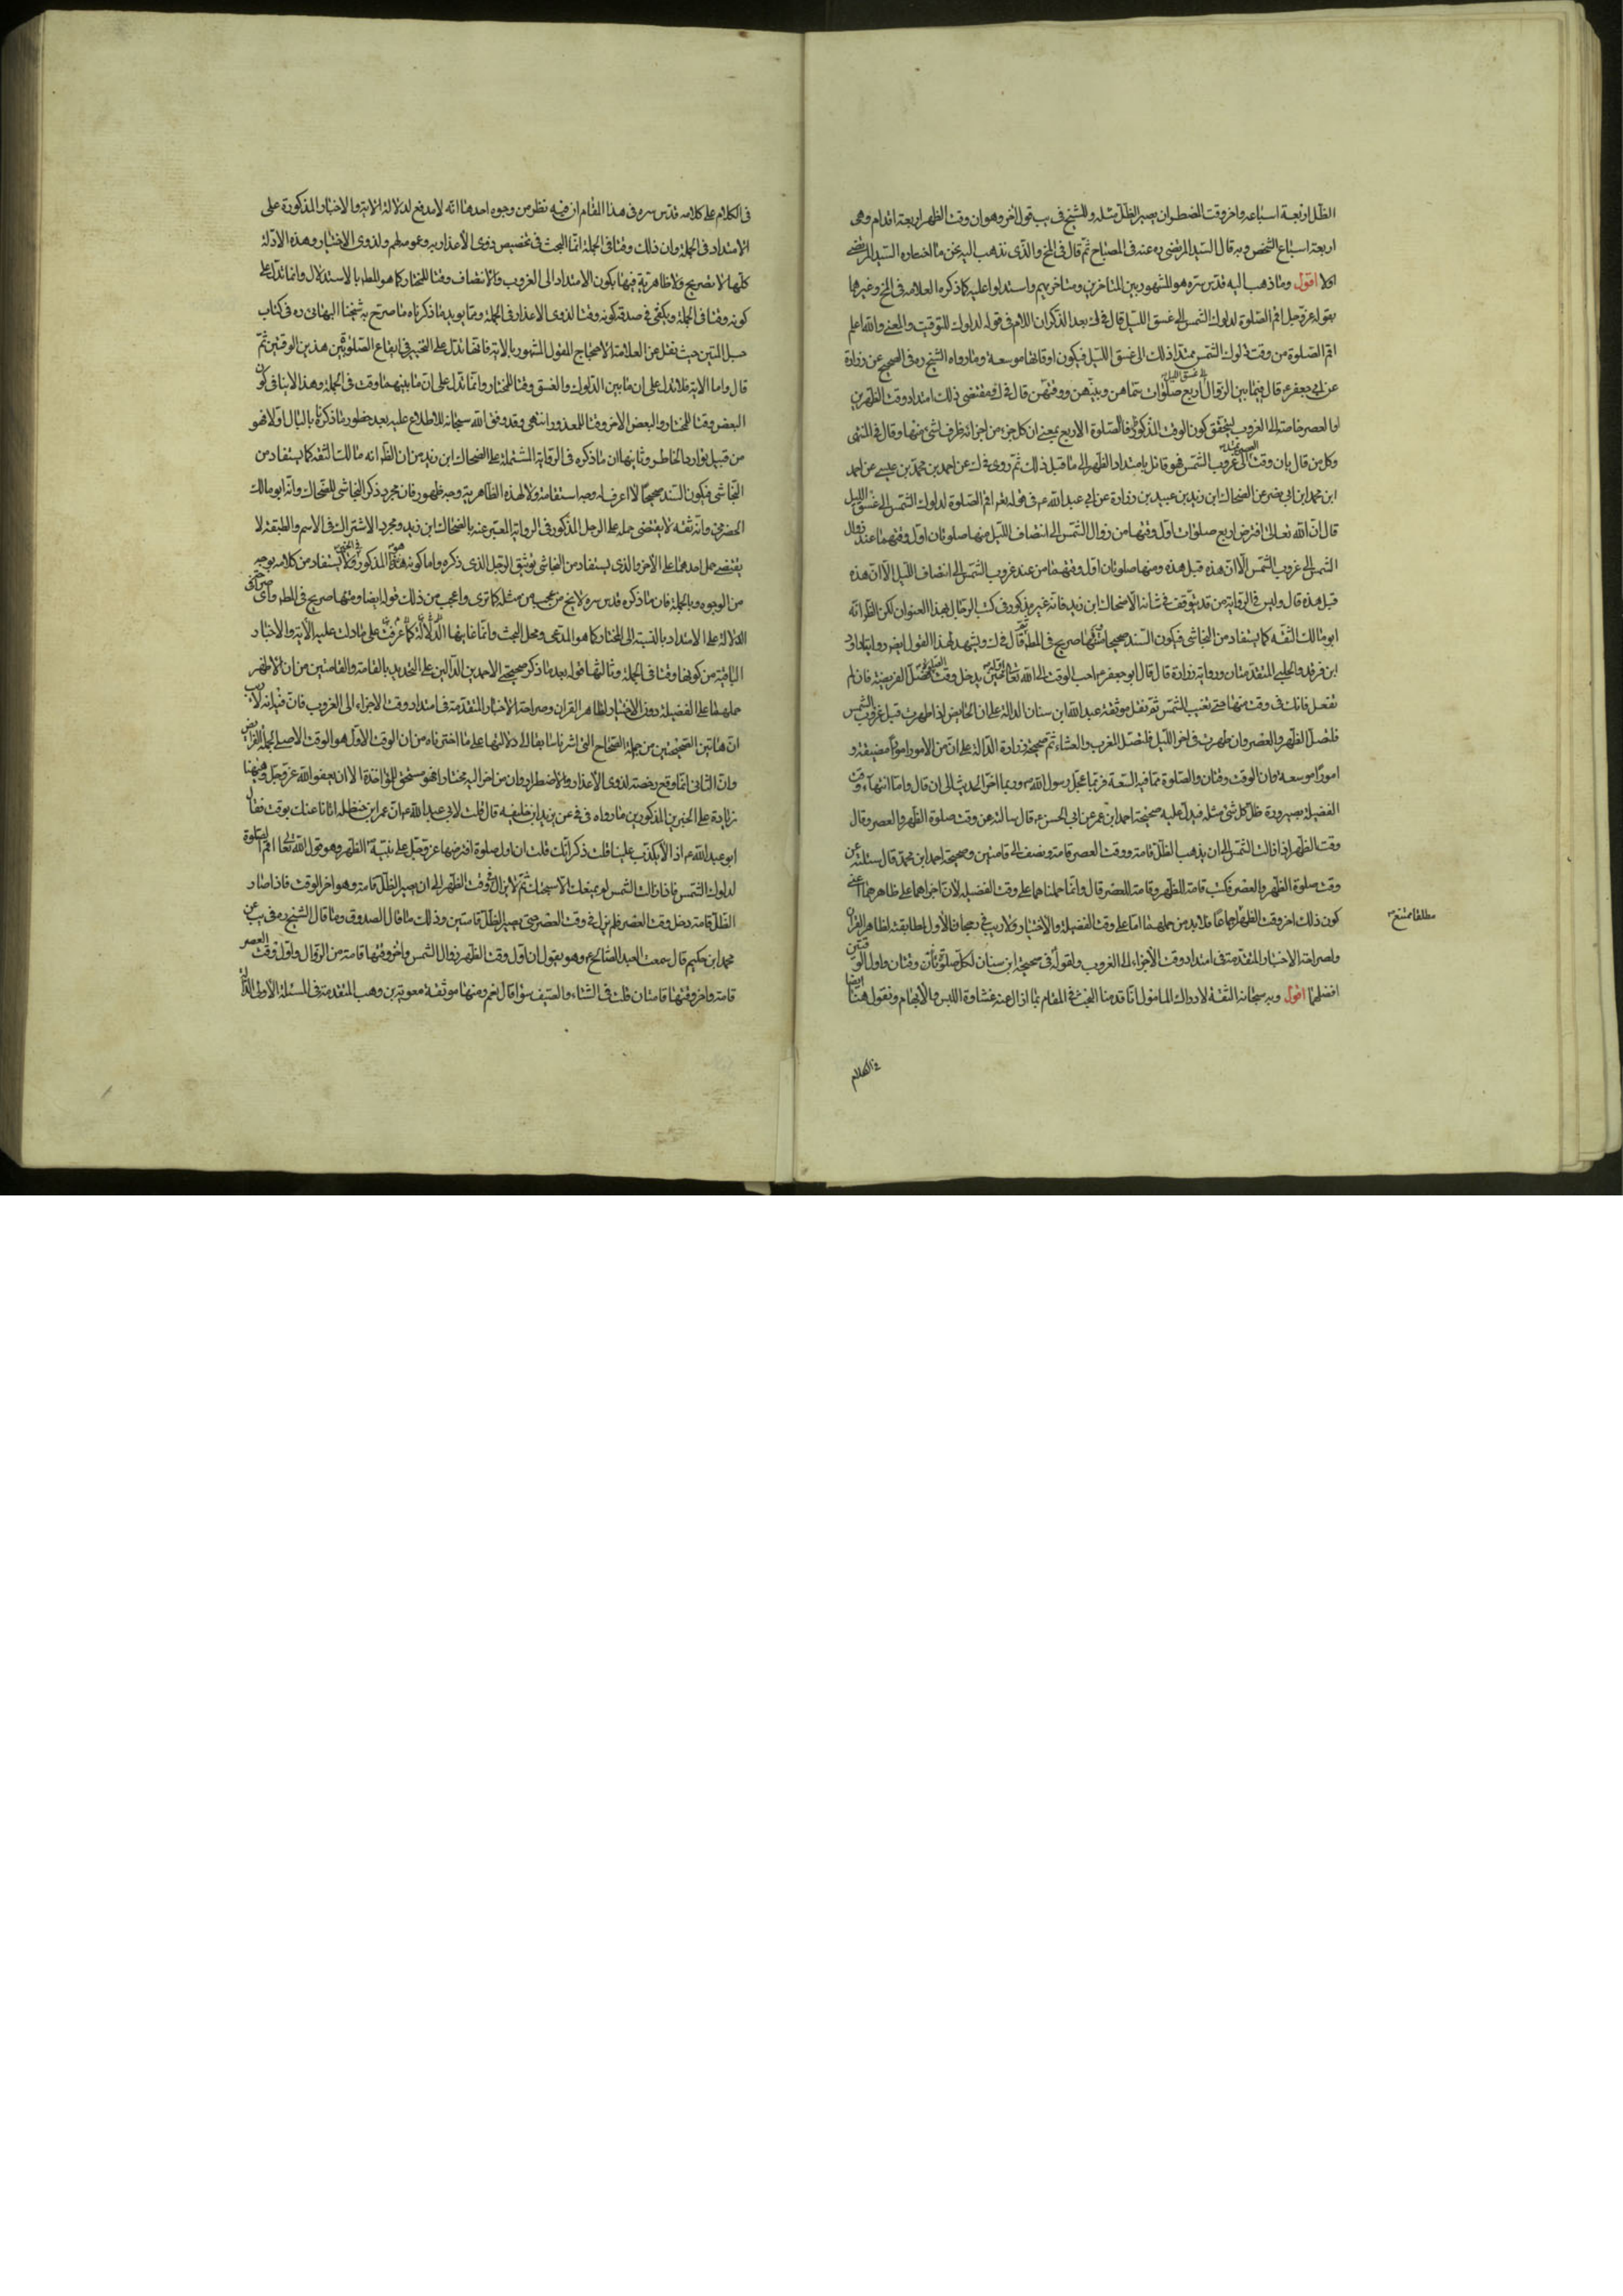 الظل اربعة اسباعه واخر وقت المضطر ان يصير الظل مثله وللشيخ في يب قول اخر وهو ان وقت الظهر اربعة اقدام وهى
اربعة اسباع الشخص وبه قال السيد المرتضى ره عنه في المصباح ثم قال في المخ والذى نذهب اليه نحن ما اختاره السيد المرتضى
اولا اقول وما ذهب اليه قدس سره هو المشهور بين المتاخرين ومتاخريهم واستدلوا عليه كما ذكره العلامه فى المخ وغيرها
بقوله عز وجل اقم الصلوة لدلوك الشمس الى غسق الليل قال في ك بعد الذكر ان اللام فى قوله لدلوك للتوقيت والمعنى والله اعلم
اقم الصلوة من وقت دلوك الشمس ممتدا ذلك الى غسق الليل فيكون اوقاتها موسعة وما رواه الشيخ ره فى الصحيح عن زرارة
عن ابى جعفر ع قال فيما بين الزوال الى غسق الليل اربع صلوات سماهن وبينهن ووقتهن قال فى ك ومقتضى ذلك امتداد وقت الظهرين
او العصر خاصة الى الغروب ليتحقق كون الوقت المذكور ظرفا للصلوة الاربع بمعنى ان كل جزء من اجزائه ظرف لشئ منها وقال فى المنتهى
وكل من قال بان وقت العصر يمتد الى غروب الشمس فهو قائل بامتداد الظهر الى ما قبل ذلك ثم روى فى ك عن احمد بن محمد بن عيسى عن احمد
ابن محمد ابن ابى نصر عن الضحاك ابن زيد بن عبيد بن زرارة عن ابى عبد الله ع فى قوله تعم اقم الصلوة لدلوك الشمس الى غسق الليل
قال ان الله تعالى افترض اربع صلوات اول وقتها من زوال الشمس الى انتصاف الليل منها صلوتان اول وقتهما عند زوال
الشمس الى غروب الشمس الا ان هذه قبل هذه ومنها صلوتان اول وقتهما من عند غروب الشمس الى انتصاف الليل الا ان هذه
قبل هذه قال وليس فى الرواية من قد يتوقف فى شانه الا ضحاك ابن زيد فانه غير مذكور فى كتب الرجال بهذا العنوان لكن الظ انه
ابو مالك الثقه كما يستفاد من النجاشى فيكون السند صحيحا ومتنها صريح فى المط ثم قال فى ك ويشهد لهذا القول ايضا روايتا داود
ابن فرقد والحلبى المتقدمتان ورواية زرارة قال قال ابو جعفر ع احب الوقت الى الله تعالى اوله حين يدخل وقت الصلوة فصل الفريضة فان لم
تفعل فانك فى وقت منها حتى تغيب الشمس ثم نقل موثقة عبد الله ابن سنان الدالة على ان الحائض اذا طهرت قبل غروب الشمس
فلتصل الظهر والعصر وان طهرت فى اخر الليل فلتصل المغرب والعشاء ثم صحيحة زرارة الدالة على ان من الامور امورا مضيقة و
امورا موسعة وان الوقت وقتان والصلوة مما فيه السعة فربما عجل رسول الله ص وربما اخر الحديث الى ان قال واما انتهاء وقت
الفضيلة بصيرورة ظل كل شئ مثله فيدل عليه صحيحة احمد ابن عمر عن ابى الحسن ع قال سالته عن وقت صلوة الظهر والعصر وقال
وقت الظهر اذا زالت الشمس الى ان يذهب الظل قامة ووقت العصر قامة ونصف الى قامتين وصحيحة احمد ابن محمد قال سئلته عن
وقت صلوة الظهر والعصر فكتب قامة للظهر وقامة للعصر قال وانما حملناهما على وقت الفضيلة لان اجراهما على ظاهرهما اعنى
كون ذلك اخر وقت الظهر مطلقا ممتنع اجماعا فلا بد من حملهما اما على وقت الفضيلة والاختيار ولا ريب فى رجحان الاول لمطابقته لظاهر القران
ولصراحة الاخبار المتقدمة فى امتداد وقت الاجزاء الى الغروب ولقوله فى صحيحة ابن سنان لكل صلوة وقتان واول الوقتين
افضلهما اقول وبه سبحانه الثقة لادراك المامول انا قدمنا البحث فى المقام بما ازال عنه غشاوة اللبس والابهام ونقول هنا ايضا
فى الكلام
مطلقا ممتنع
فى الكلام على كلامه قدس سره فى هذا المقام ان فيه نظر من وجوه احدها انه لا مدفع لدلالة الاية والاخبار المذكورة على
الامتداد فى الجملة وان ذلك وقتا فى الجملة انما البحث فى تخصيص ذوى الاعذار به وعمومه لهم ولذوى الاختيار وهذه الادلة
كلها لا تصريح ولا ظاهرية فيها بكون الامتداد الى الغروب والانتصاف وقتا للمختار كما هو المط بالاستدلال وانما تدل على
كونه وقتا فى الجملة ويكفى فى صدقه كونه وقتا لذوى الاعذار فى الجملة ومما يويد ما ذكرناه ما صرح به شيخنا البهائى ره فى كتاب
حبل المتين حيث نقل عن العلامة الاحتجاج للقول المشهور بالاية فانها تدل على التخيير فى ايقاع الصلوة بين هذين الوقتين ثم
قال واما الاية فلا تدل على ان ما بين الدلوك والغسق وقتا للمختار وانما تدل على ان ما بينهما وقت فى الجملة وهذا لا ينافى كون
البعض وقتا للمختار والبعض الاخر وقتا للمعذور انتهى وقد وفق الله سبحانه للاطلاع عليه بعد خطور ما ذكرناه بالبال اولا فهو
من قبيل توارد الخاطر وثانيها ان ما ذكره فى الرواية المشتملة على الضحاك ابن زيد من ان الظ انه مالك الثقة كما يستفاد من
النجاشى فيكون السند صحيحا لا اعرف له وجه استقامة ولا لهذه الظاهرية وجه ظهور فان مجرد ذكر النجاشى للضحاك وانه ابو مالك
الحضرمى وانه ثقه لا يقتضى حمله على الرجل المذكور فى الرواية المعبر عنه بالضحاك ابن زيد ومجرد الاشتراك فى الاسم والطبقة لا
يقتضى حمل احدهما على الاخر والذى يستفاد من النجاشى توثيق الرجل الذى ذكره واما كونه هو هذا المذكور فى الخبر فلا يستفاد من كلامه بوجه
من الوجوه وبالجملة فان ما ذكره قدس سره لا يخ من عجب من مثله كما ترى واعجب من ذلك قوله ايضا ومتنها صريح فى المط واى صراحة فى
الدلالة على الامتداد بالنسبة الى المختار كما هو المدعى ومحل البحث وانما غايتها الدلالة كما عرفت على ما دلت عليه الاية والاخبار
الباقية من كونها وقتا فى الجملة وثالثها قوله بعد ما ذكر صحيحتى الاحمدين الدالين على التحديد بالقامة والقامتين من ان الاظهر
حملهما على الفضيلة دون الاختيار لظاهر القران وصراحة الاخبار المتقدمة فى امتداد وقت الاجزاء الى الغروب فان فيه انه لا ريب
ان هاتين الصحيحتين من جملة الصحاح التى اشرنا سابقا الى دلالتها على ما اخترناه من ان الوقت الاول هو الوقت الاصلى لجملة الفرائض
وان الثانى انما وقع رخصة لذوى الاعذار والاضطرار وان من اخر اليه مختارا فهو مستحق للمؤاخذة الا ان يعفو الله عز وجل ومنها
زيادة على الخبرين المذكورين ما رواه فى فى عن يزيد ابن خليفه قال قلت لابى عبد الله ع ان عمر ابن حنظله اتانا عنك بوقت فقال
ابو عبد الله ع اذا لا يكذب علينا قلت ذكر انك قلت ان اول صلوة افترضها عز وجل على نبيه الظهر وهو قول الله تعالى اقم الصلوة
لدلوك الشمس فاذا زالت الشمس لم يمنعك الا سبحتك ثم لا تزال فى وقت الظهر الى ان يصير الظل قامة وهو اخر الوقت فاذا صار
الظل قامة دخل وقت العصر فلم تزل فى وقت العصر حتى يصير الظل قامتين وذلك ما قال الصدوق وما قال الشيخ ره فى يب عن
محمد ابن حكيم قال سمعت العبد الصالح ع وهو يقول ان اول وقت الظهر زوال الشمس واخر وقتها قامة من الزوال واول وقت العصر
قامة واخر وقتها قامتان قلت فى الشتاء والصيف سواء قال نعم ومنها موثقة معوية بن وهب المتقدمة فى المسئلة الاولى الدالة